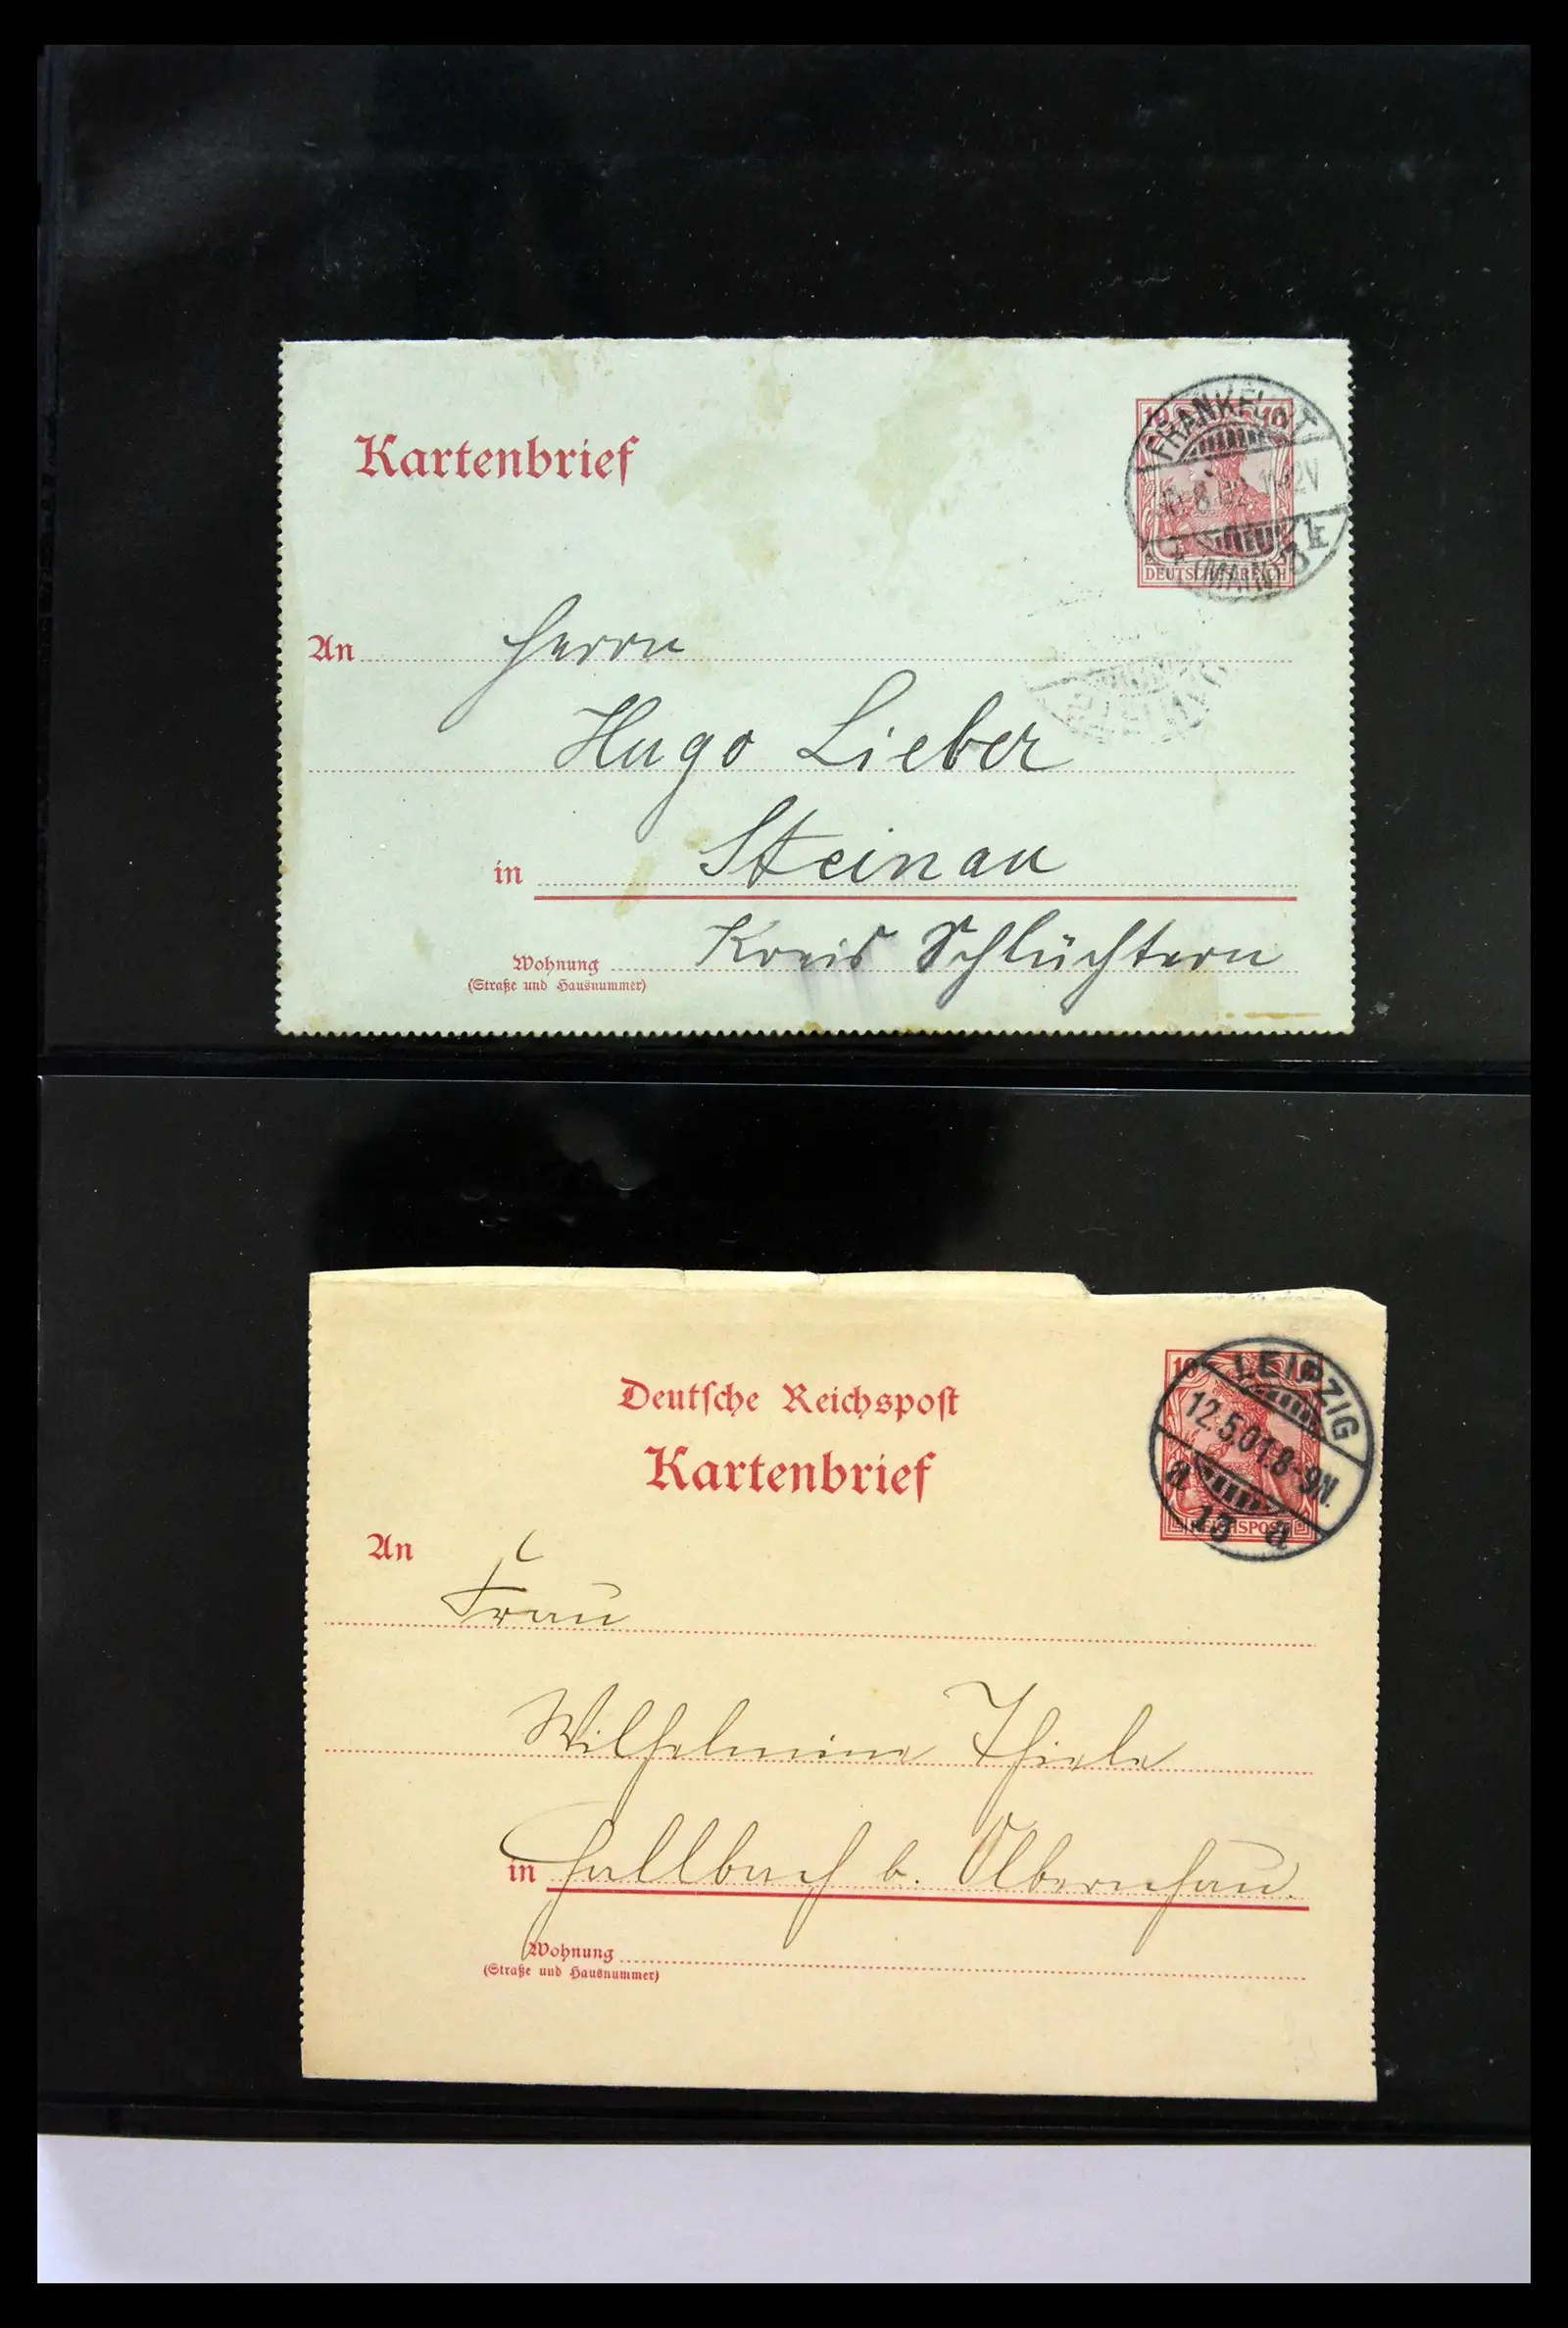 Kartenbrief
10 10
FRANKFURT
(MAIN)
DEUTSCHES REICH
An Herrn
Hugo Lieber
in Steinau
Wohnung Kreis Schlüchtern
(Straße und Hausnummer)
Deutsche Reichspost
Kartenbrief
10
LEIPZIG
12.5.01.8-9N.
a 13 a
REICHSPOST
An
Frau
Wilhelmine Thiele
in Hallbach b. Olbernhau.
Wohnung
(Straße und Hausnummer)